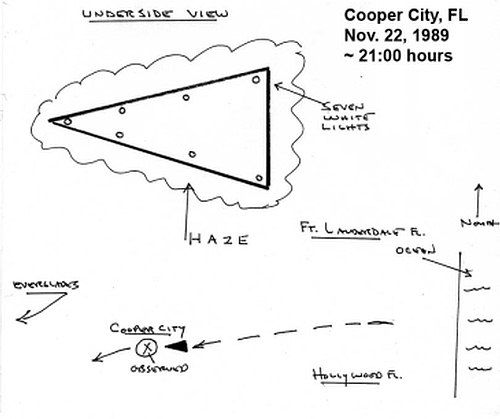 UNDERSIDE VIEW
Cooper City, FL
Nov. 22, 1989
~ 21:00 hours
SEVEN
WHITE
LIGHTS
HAZE
NORTH
FT. LAUDERDALE FL.
OCEAN
EVERGLADES
COOPER CITY
X
OBSERVED
HOLLYWOOD FL.